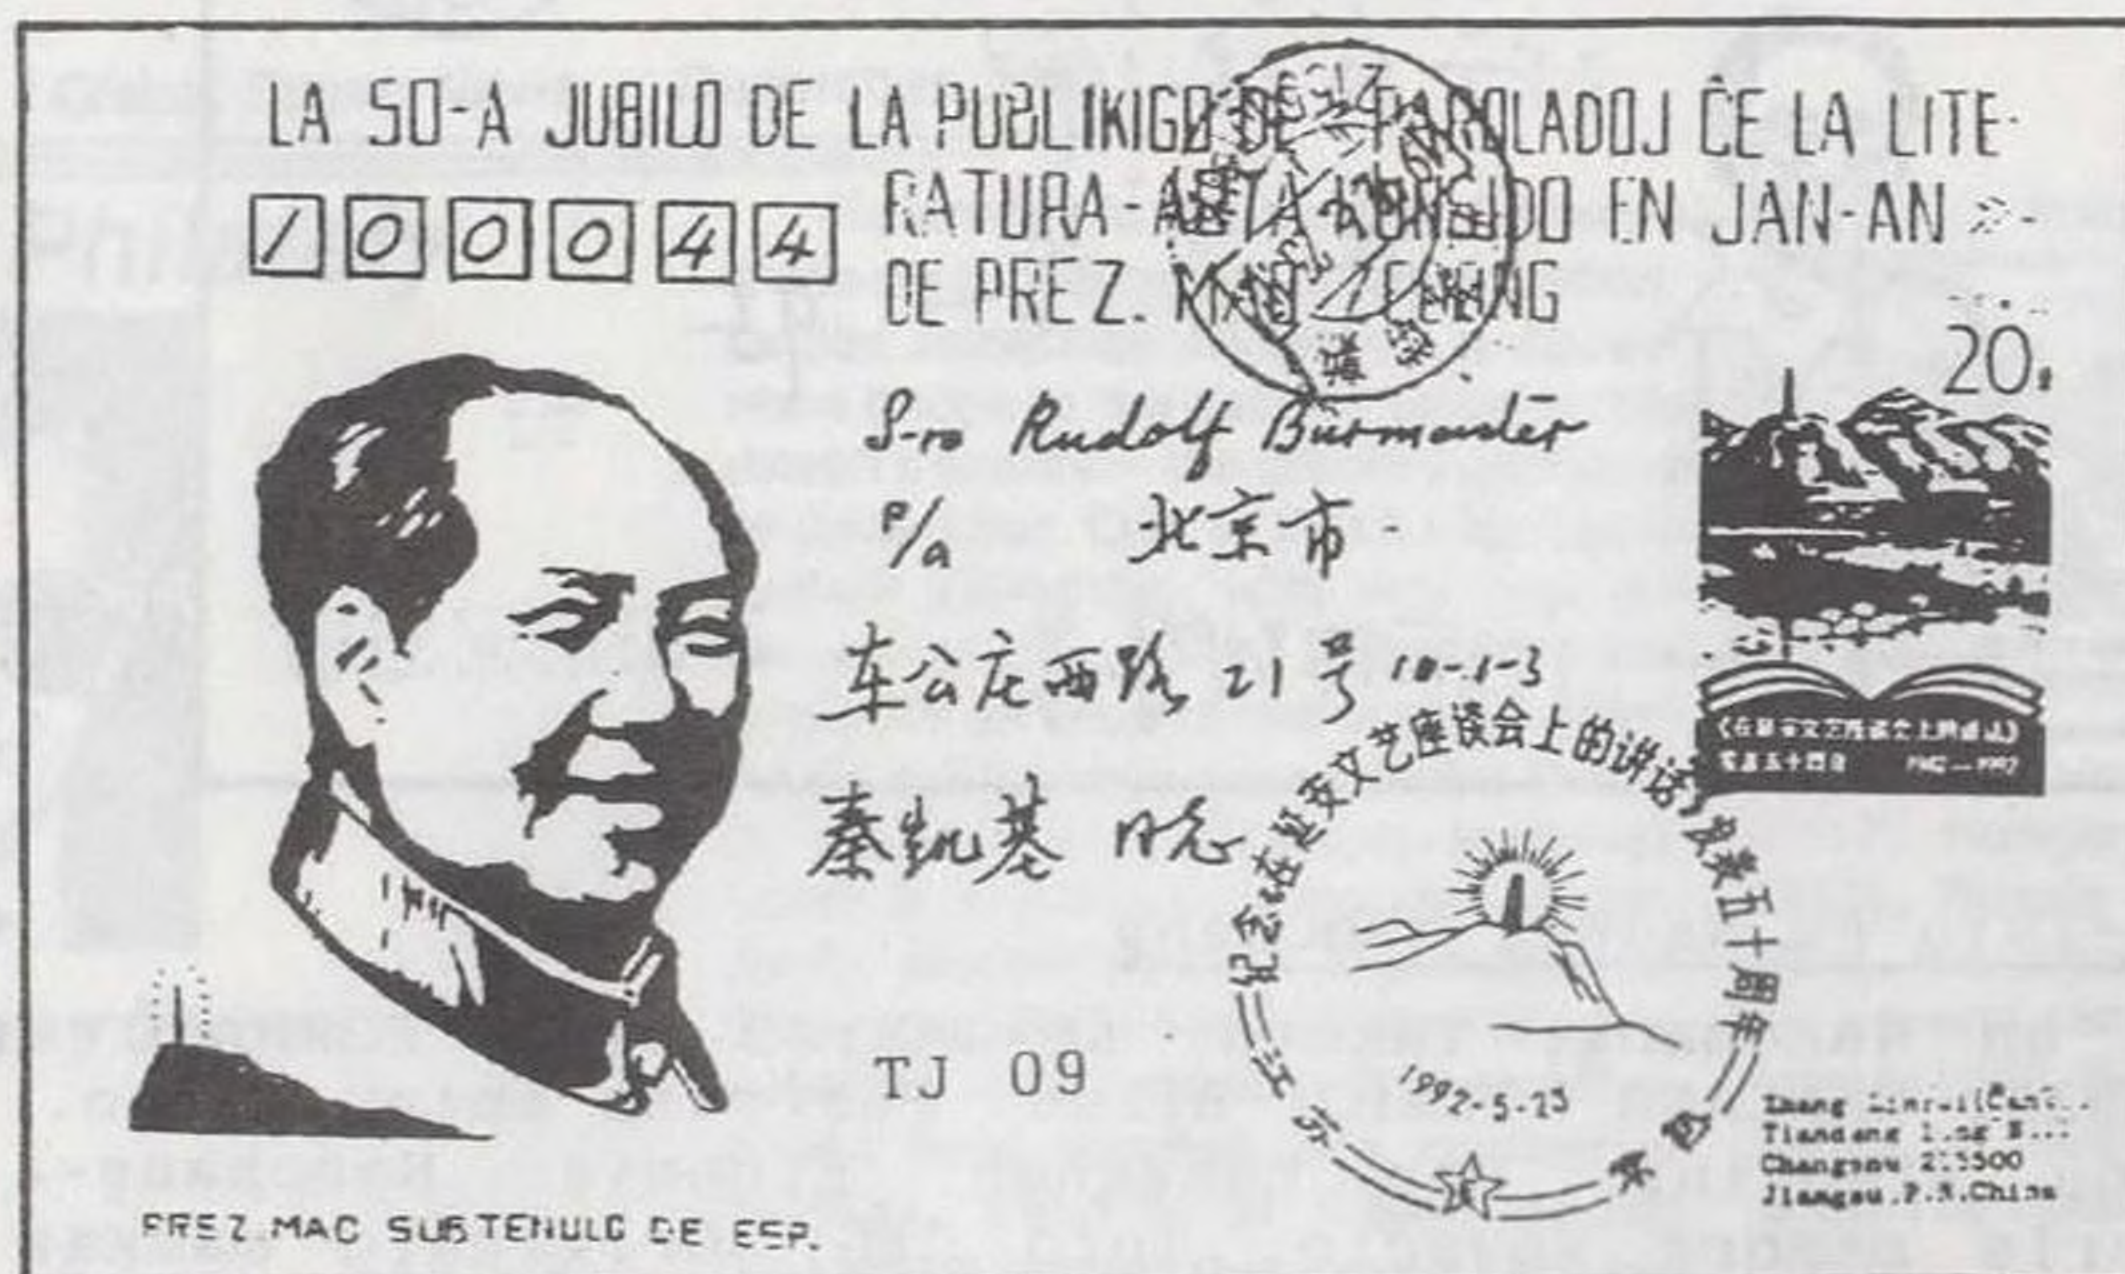 LA 50-A JUBILO DE LA PUBLIKIGO DE PAROLADOJ ĈE LA LITE-
RATURA-ARTA KONSIDO EN JAN-AN
DE PREZ. MAO ZEDONG
100044
20
S-ro Rudolf Burmeister
P/a 北京市
车公庄西路 21号 10-1-3
秦凯基
《在延安文艺座谈会上的讲话》
发表五十周年 1942—1992
纪念《在延安文艺座谈会上的讲话》发表五十周年
1992-5-23
江苏
TJ 09
Zhang
Tiandeng
Changshu 215500
Jiangsu.P.R.China
PREZ.MAO SUBTENULO DE ESP.